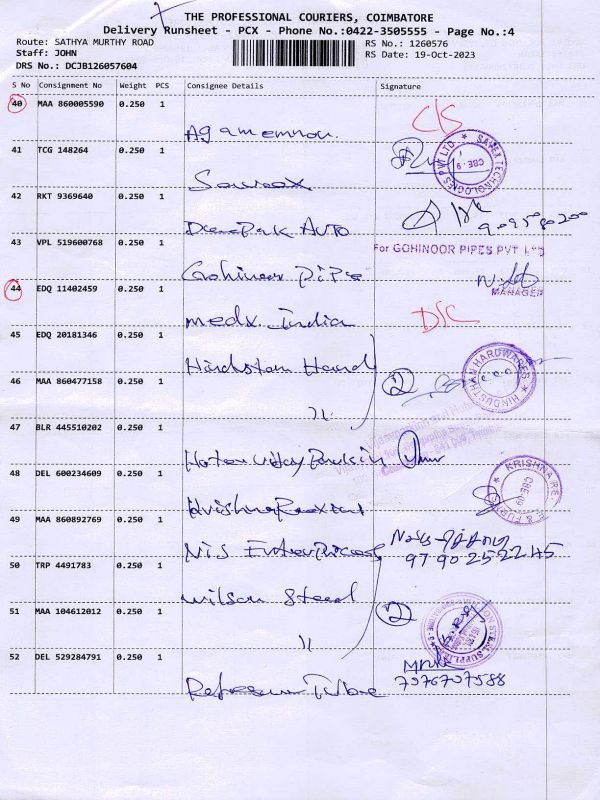 THE PROFESSIONAL COURIERS, COIMBATORE
Delivery Runsheet - PCX - Phone No.:0422-3505555 - Page No.:4
Route: SATHYA MURTHY ROAD
RS No.: 1260576
Staff: JOHN
RS Date: 19-Oct-2023
DRS No.: DCJB126057604
S No Consignment No Weight PCS Consignee Details Signature
40 MAA 860005590 0.250 1
Agamemnon.
41 TCG 148264 0.250 1
SAVEX TECHNOLOGIES PVT LTD * CBE-9
42 RKT 9369640 0.250 1
Deepak Auto
43 VPL 519600768 0.250 1
For GOHINOOR PIPES PVT LTD
Gohinoor Pipe
MANAGER
44 EDQ 11402459 0.250 1
medx India
45 EDQ 20181346 0.250 1
Hindustan Hard
2
HINDUSTHAN HARDWARES
46 MAA 860477158 0.250 1
"
47 BLR 445510202 0.250 1
Hotel Vijay
48 DEL 600234609 0.250 1
Krishna
KRISHNA
CBE-09
49 MAA 860892769 0.250 1
NIS Enterprises
97902 52245
50 TRP 4491783 0.250 1
Wilson Steel
2
51 MAA 104612012 0.250 1
"
52 DEL 529284791 0.250 1
Tube
7076707588